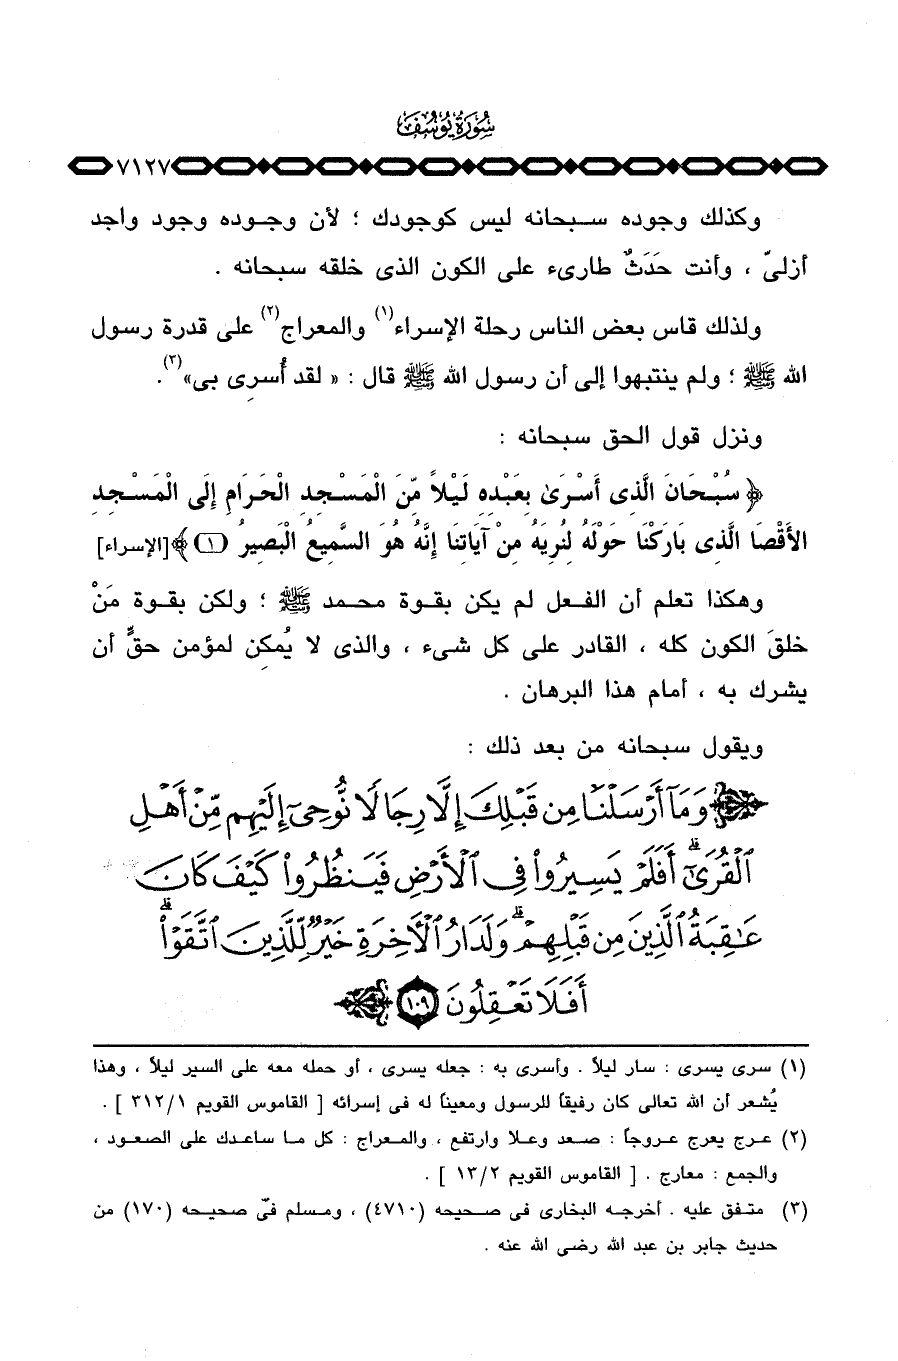 سُورَةُ يُوسُفَ
٧١٢٧
وكذلك وجوده سبحانه ليس كوجودك ؛ لأن وجوده وجود واجد
أزلىّ ، وأنت حَدَثٌ طارىء على الكون الذى خلقه سبحانه .
ولذلك قاس بعض الناس رحلة الإسراء(١) والمعراج(٢) على قدرة رسول
الله ﷺ ؛ ولم ينتبهوا إلى أن رسول الله ﷺ قال : « لقد أُسرِى بى»(٣).
ونزل قول الحق سبحانه :
﴿ سُبْحَانَ الَّذِى أَسْرَىٰ بِعَبْدِهِ لَيْلاً مِّنَ الْمَسْجِدِ الْحَرَامِ إِلَى الْمَسْجِدِ
الأَقْصَا الَّذِى بَارَكْنَا حَوْلَهُ لِنُرِيَهُ مِنْ آيَاتِنَا إِنَّهُ هُوَ السَّمِيعُ الْبَصِيرُ (١)﴾[الإسراء]
وهكذا تعلم أن الفعل لم يكن بقوة محمد ﷺ ؛ ولكن بقوة مَنْ
خلقَ الكون كله ، القادر على كل شىء ، والذى لا يُمكِن لمؤمن حقٍّ أن
يشرك به ، أمام هذا البرهان .
ويقول سبحانه من بعد ذلك :
﴿ وَمَآ أَرْسَلْنَا مِن قَبْلِكَ إِلَّا رِجَالًا نُّوحِىٓ إِلَيْهِم مِّنْ أَهْلِ
ٱلْقُرَىٰٓ ۗ أَفَلَمْ يَسِيرُوا۟ فِى ٱلْأَرْضِ فَيَنظُرُوا۟ كَيْفَ كَانَ
عَـٰقِبَةُ ٱلَّذِينَ مِن قَبْلِهِمْ ۗ وَلَدَارُ ٱلْأَخِرَةِ خَيْرٌ لِّلَّذِينَ ٱتَّقَوْا۟ ۗ
أَفَلَا تَعْقِلُونَ ١٠٩ ﴾
(١) سرى يسرى : سار ليلاً . وأسرى به : جعله يسرى ، أو حمله معه على السير ليلاً ، وهذا
يُشعر أن الله تعالى كان رفيقاً للرسول ومعيناً له فى إسرائه [ القاموس القويم ٣١٢/١ ] .
(٢) عرج يعرج عروجاً : صعد وعلا وارتفع ، والمعراج : كل ما ساعدك على الصعود ،
والجمع : معارج . [ القاموس القويم ١٣/٢ ] .
(٣) متفق عليه . أخرجه البخارى فى صحيحه (٤٧١٠) ، ومسلم فى صحيحه (١٧٠) من
حديث جابر بن عبد الله رضى الله عنه .